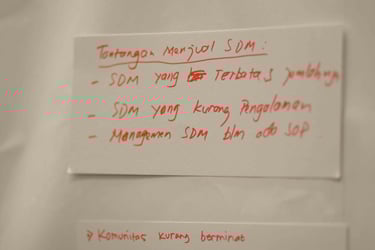 Tantangan Menjual SDM :
- SDM yang Terbatas jumlahnya
- SDM yang kurang Pengalaman
- Managemen SDM blm ada SOP
» Komunitas kurang berminat